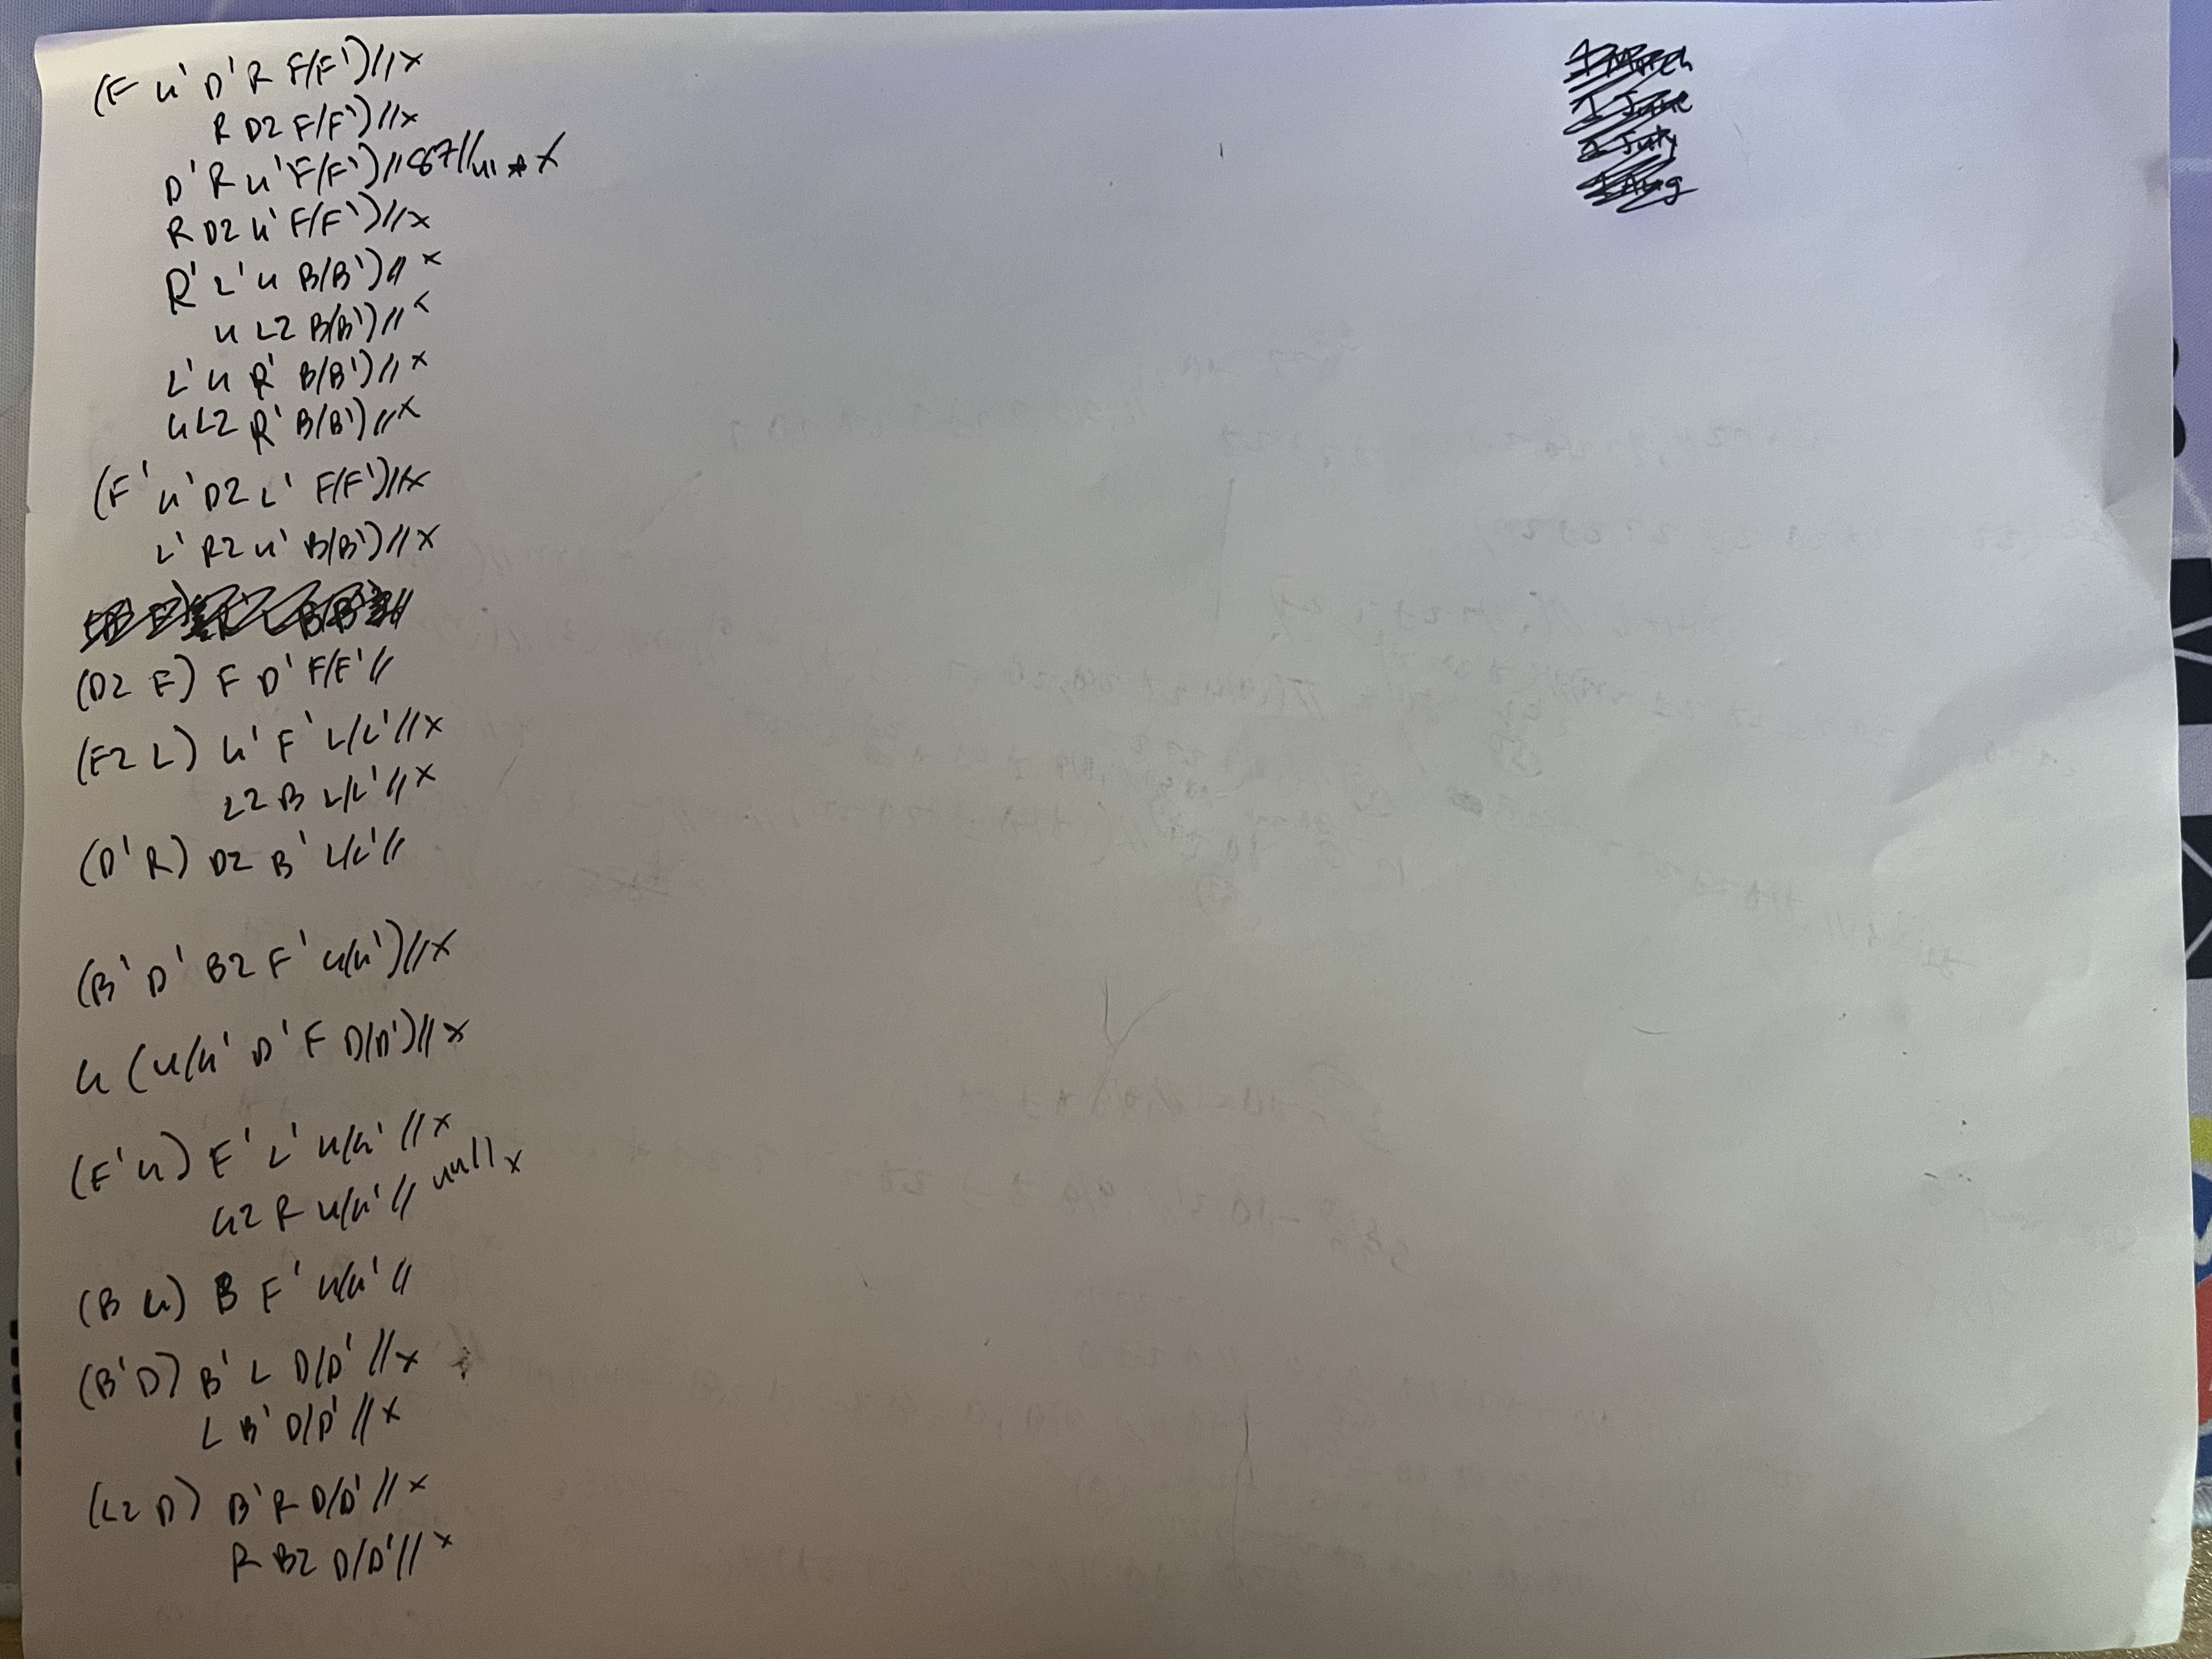 (F U' D' R F/F')//x
R D2 F/F')//x
D' R U' F/F')//
R D2 U' F/F')//x
R' L' U B/B')// x
U L2 B/B')// x
L' U R' B/B')//x
U L2 R' B/B')//x
(F' U' D2 L' F/F')//x
L' R2 U' B/B')//x
(D2 F) F D' F/F'//
(F2 L) U' F' L/L'//x
L2 B L/L'//x
(D' R) D2 B' L/L'//
(B' D' B2 F' U/U')//x
U (U/U' D' F D/D')//x
(F' U) F' L' U/U' //x
U2 R U/U'// null x
(B U) B F' U/U' //
(B' D) B' L D/D' //x
L B' D/D' //x
(L2 D) B' R D/D' //x
R B2 D/D'// x
1 June
1 July
1 Aug